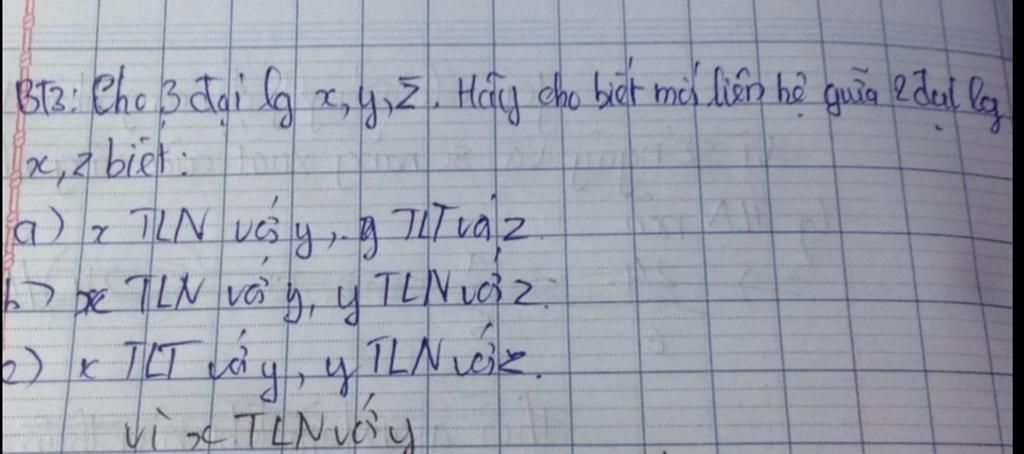 BT3: Cho 3 đại lg x, y, z. Hãy cho biết mối liên hệ giữa 2 đại lg
x, z biết:
a) x TLN với y, y TLT với z
b) x TLN với y, y TLN với z.
c) x TLT với y, y TLN với z.
Vì x TLN với y